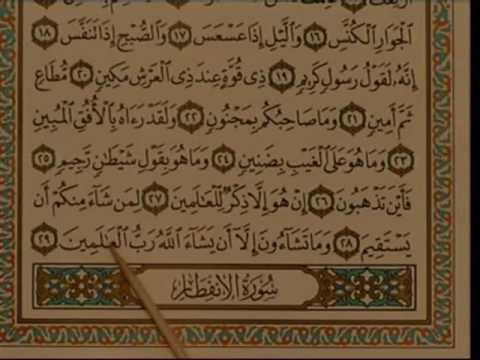 ٱلۡجَوَارِ ٱلۡكُنَّسِ ١٦ وَٱلَّيۡلِ إِذَا عَسۡعَسَ ١٧ وَٱلصُّبۡحِ إِذَا تَنَفَّسَ ١٨
إِنَّهُۥ لَقَوۡلُ رَسُولٖ كَرِيمٖ ١٩ ذِي قُوَّةٍ عِندَ ذِي ٱلۡعَرۡشِ مَكِينٖ ٢٠ مُّطَاعٖ
ثَمَّ أَمِينٖ ٢١ وَمَا صَاحِبُكُم بِمَجۡنُونٖ ٢٢ وَلَقَدۡ رَءَاهُ بِٱلۡأُفُقِ ٱلۡمُبِينِ
٢٣ وَمَا هُوَ عَلَى ٱلۡغَيۡبِ بِضَنِينٖ ٢٤ وَمَا هُوَ بِقَوۡلِ شَيۡطَٰنٖ رَّجِيمٖ ٢٥
فَأَيۡنَ تَذۡهَبُونَ ٢٦ إِنۡ هُوَ إِلَّا ذِكۡرٞ لِّلۡعَٰلَمِينَ ٢٧ لِمَن شَآءَ مِنكُمۡ أَن
يَسۡتَقِيمَ ٢٨ وَمَا تَشَآءُونَ إِلَّآ أَن يَشَآءَ ٱللَّهُ رَبُّ ٱلۡعَٰلَمِينَ ٢٩
سُورَةُ الانفِطَارِ